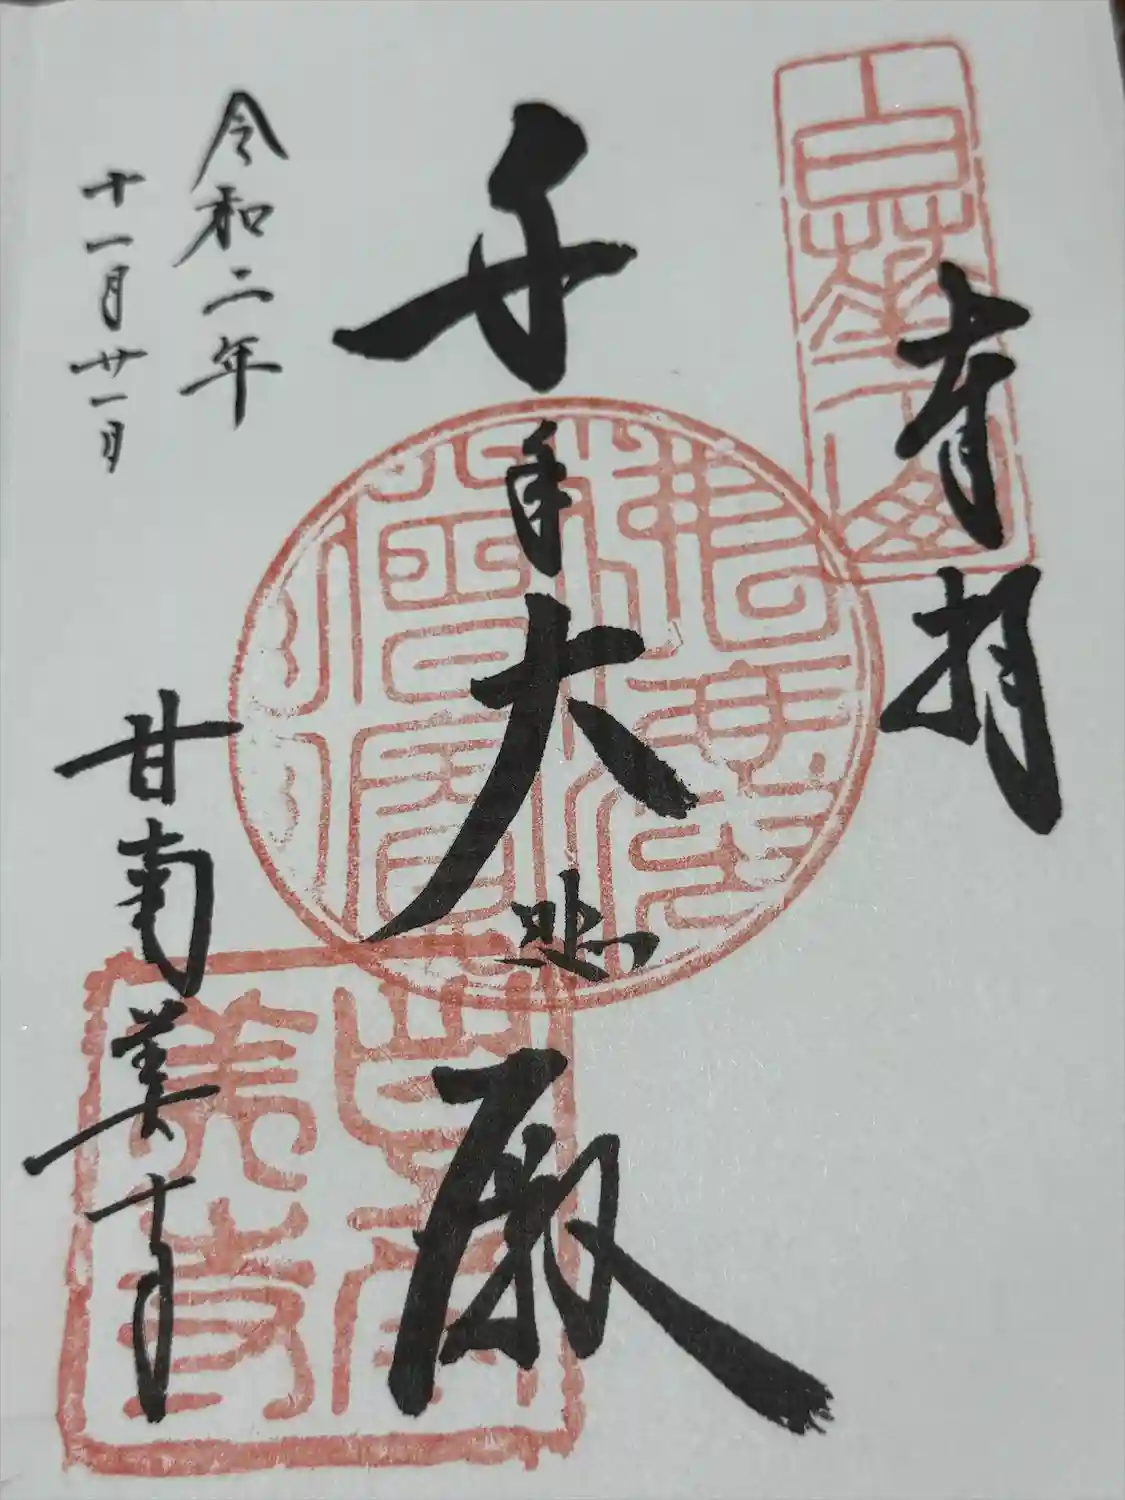 白華山
奉拝
千手大悲殿
令和二年
十一月廿一日
甘南美寺